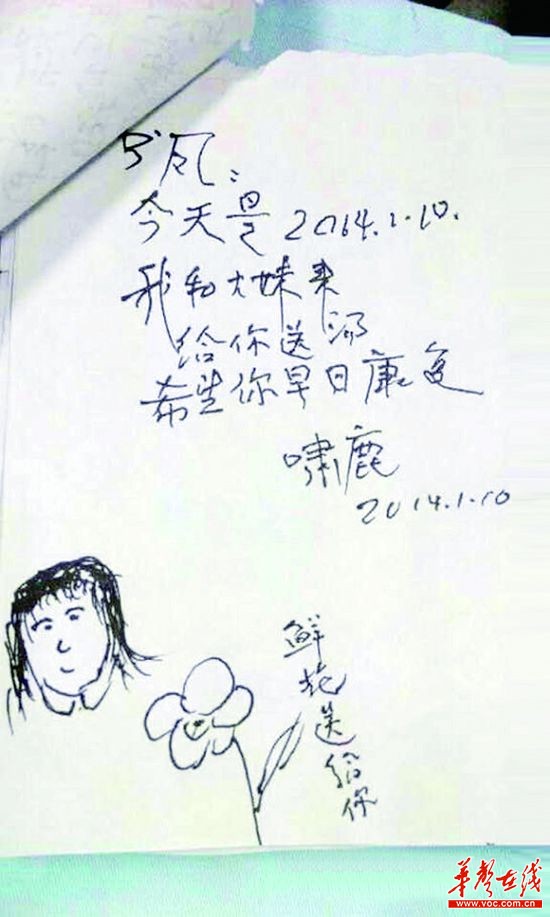 今天是2014.1.10.
我和大妹来
给你送汤
希望你早日康复
啸鹿
2014.1.10
鲜花送给你
华声在线
www.voc.com.cn